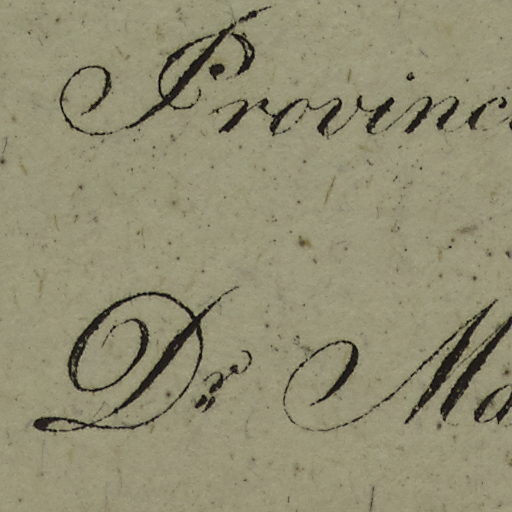 Provinc
Dr Ma